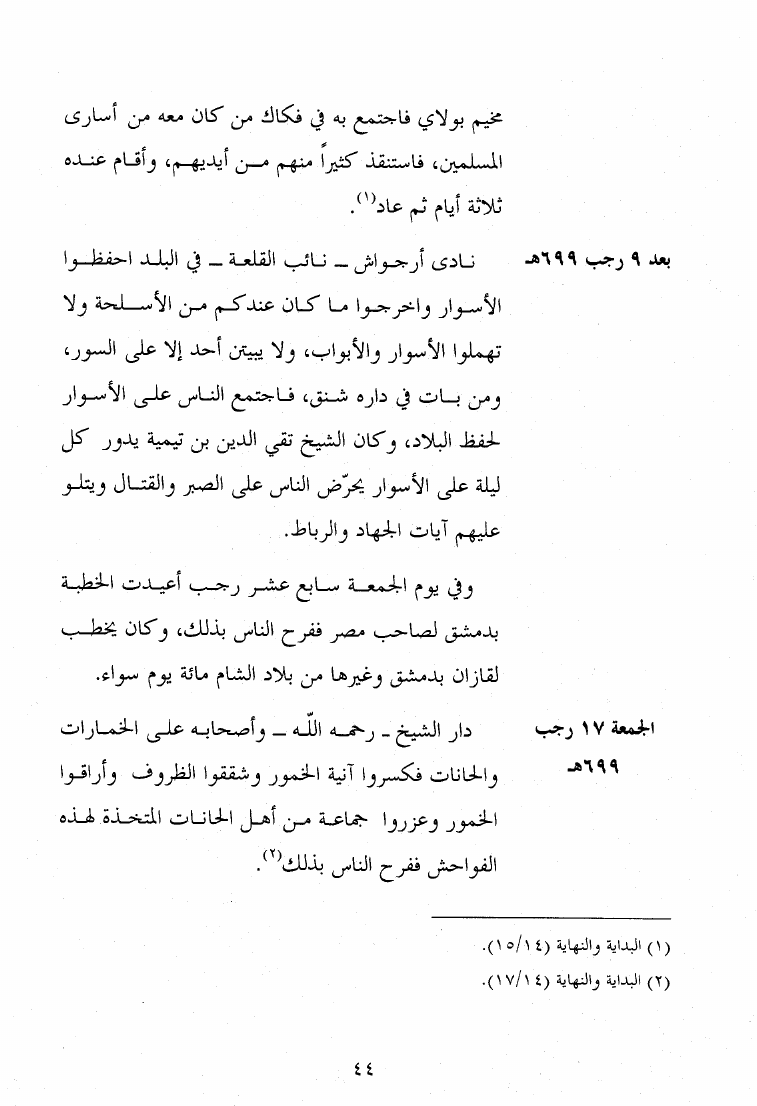 مخيم بولاي فاجتمع به في فكاك من كان معه من أسارى
المسلمين، فاستنقذ كثيراً منهم من أيديهم، وأقام عنده
ثلاثة أيام ثم عاد(١).
بعد ٩ رجب ٦٩٩هـ
نادى أرجواش – نائب القلعة – في البلد احفظوا
الأسوار واخرجوا ما كان عندكم من الأسلحة ولا
تهملوا الأسوار والأبواب، ولا يبيتن أحد إلا على السور،
ومن بات في داره شنق، فاجتمع الناس على الأسوار
لحفظ البلاد، وكان الشيخ تقي الدين بن تيمية يدور كل
ليلة على الأسوار يحرّض الناس على الصبر والقتال ويتلو
عليهم آيات الجهاد والرباط.
وفي يوم الجمعة سابع عشر رجب أعيدت الخطبة
بدمشق لصاحب مصر ففرح الناس بذلك، وكان يخطب
لقازان بدمشق وغيرها من بلاد الشام مائة يوم سواء.
الجمعة ١٧ رجب
٦٩٩هـ
دار الشيخ – رحمه اللّه – وأصحابه على الخمارات
والحانات فكسروا آنية الخمور وشققوا الظروف وأراقوا
الخمور وعزروا جماعة من أهل الحانات المتخذة لهذه
الفواحش ففرح الناس بذلك(٢).
(١) البداية والنهاية (١٥/١٤).
(٢) البداية والنهاية (١٧/١٤).
٤٤